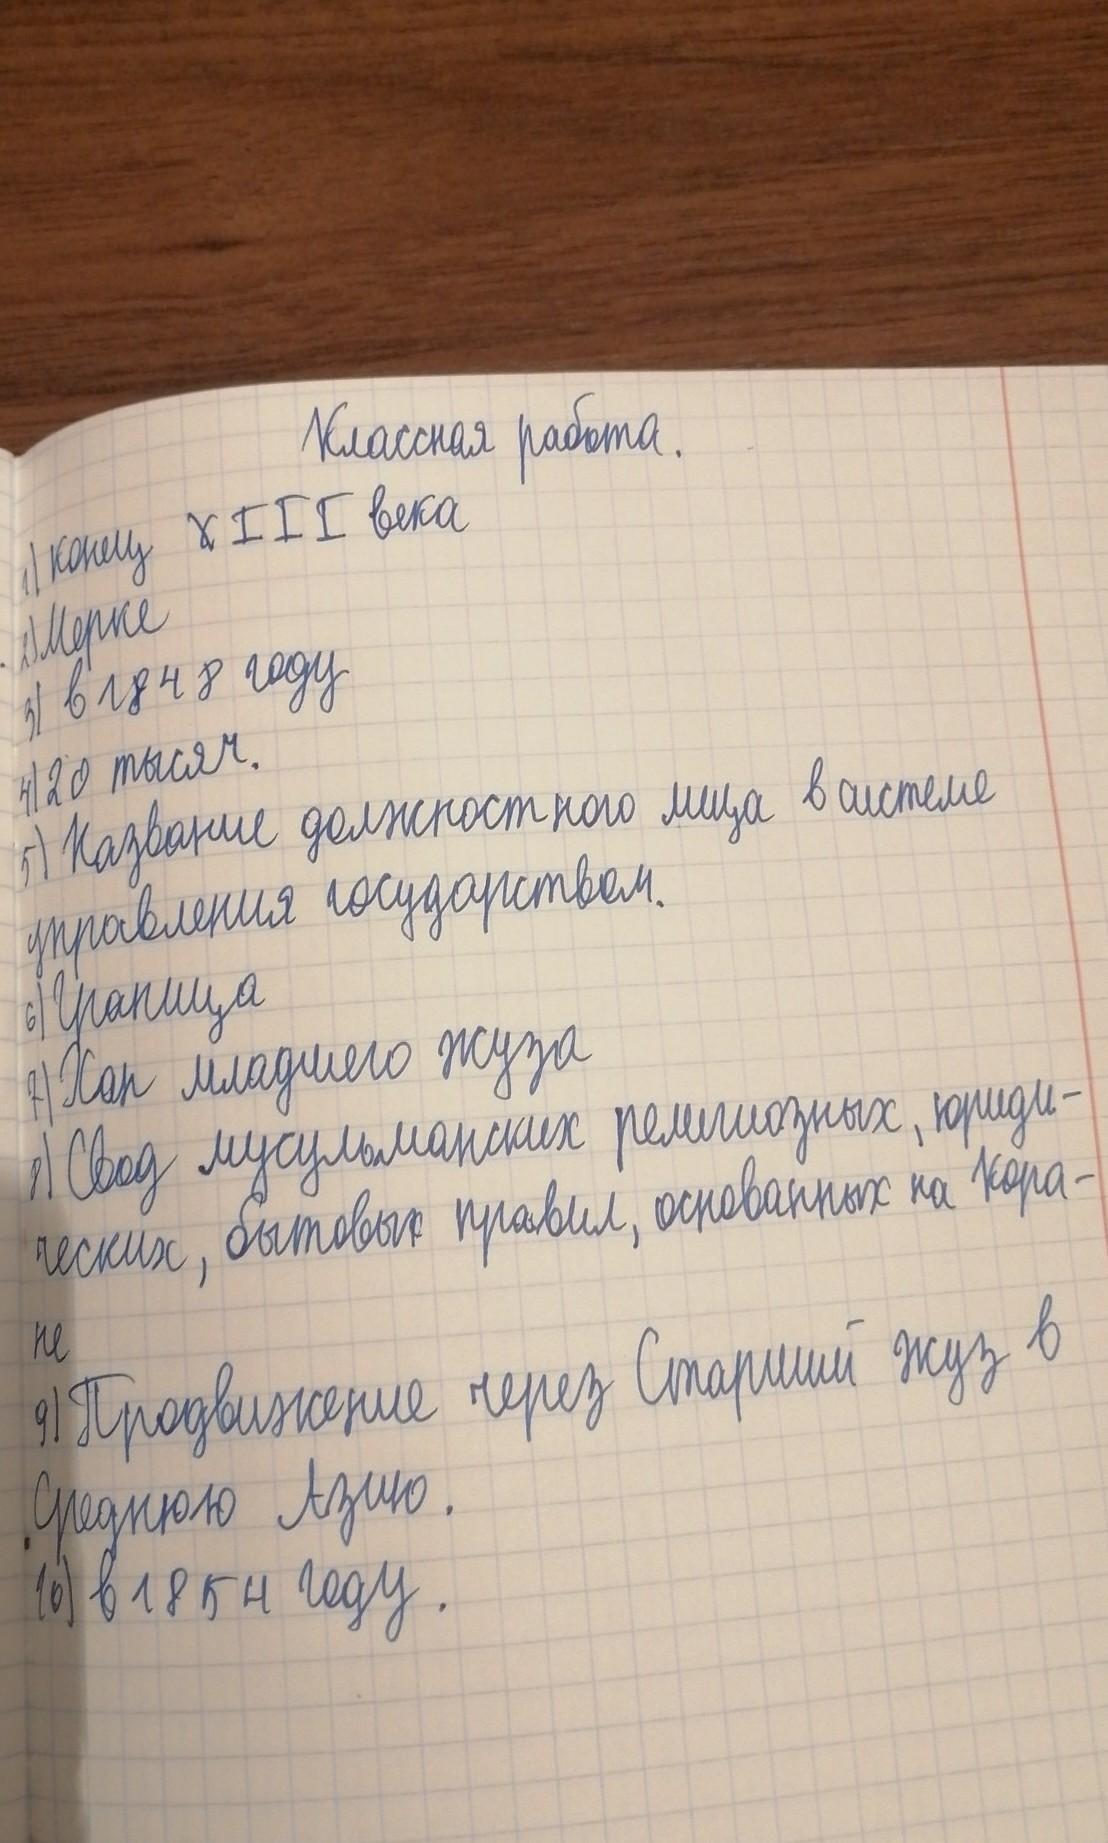 Классная работа.
1) конец XIII века
2) Мерке
3) в 1848 году
4) 20 тысяч.
5) Название должностного лица в системе
управления государством.
6) Граница
7) Хан младшего жуза
8) Свод мусульманских религиозных, юриди-
ческих, бытовых правил, основанных на Кора-
не
9) Продвижение через Старший жуз в
Среднюю Азию.
10) в 1854 году.